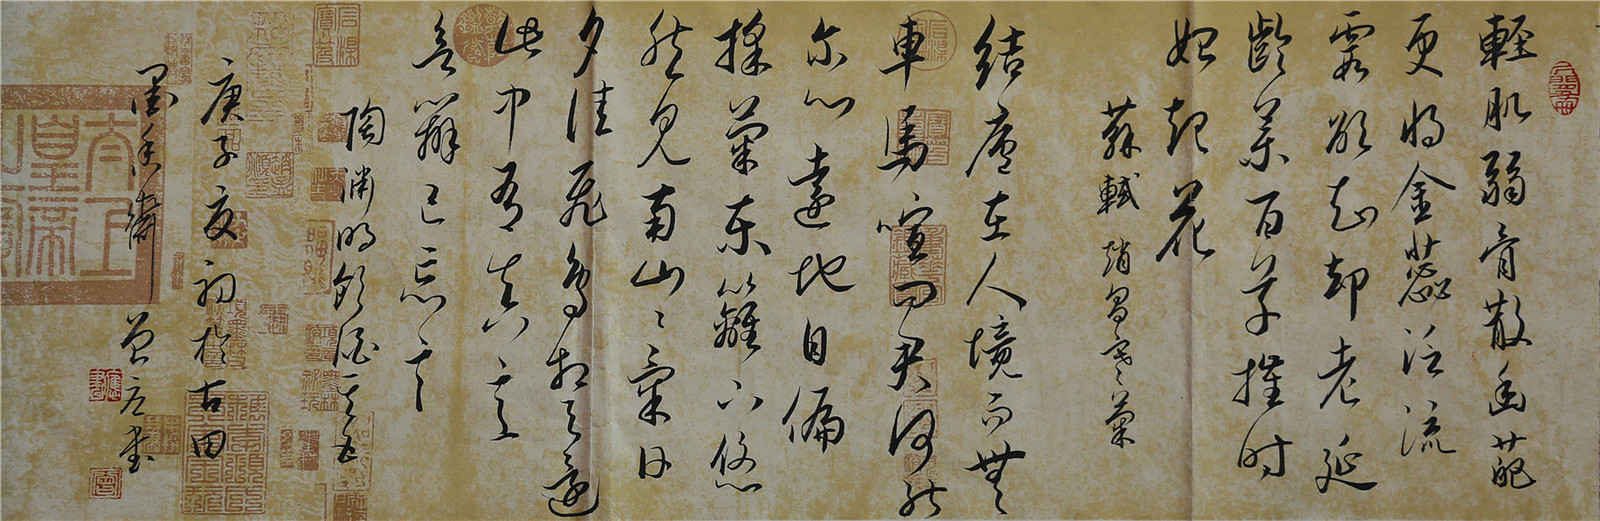 輕肌弱骨散幽葩
更将金蕊泛流
霞欲知却老延
齡藥百草摧时
始起花
蘇軾 趙昌寒菊
結廬在人境而無
車馬喧問君何能
尔心遠地自偏
採菊東籬下悠
然見南山山氣日
夕佳飛鳥相与還
此中有真意
欲辯已忘言
陶渊明飲酒其五
庚子夏初於古田
墨香齋 书